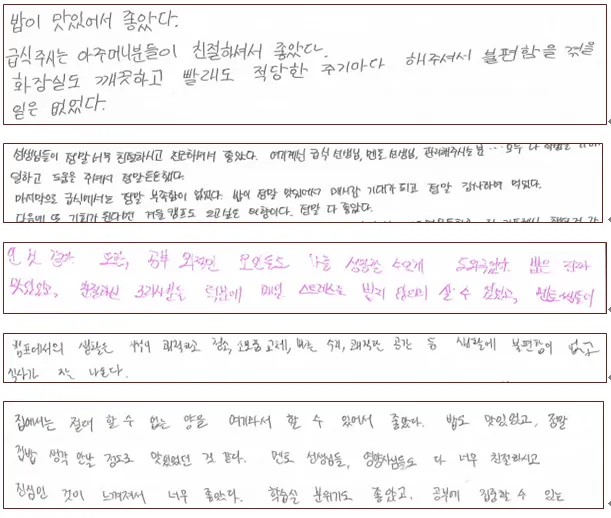 밥이 맛있어서 좋았다.
급식 주시는 아주머니분들이 친절하셔서 좋았다.
화장실도 깨끗하고 빨래도 적당한 주기마다 해주셔서 불편함을 겪을
일은 없었다.
선생님들이 정말 너무 친절하시고 좋았다. 여기계신 급식 선생님, 멘토 선생님, 관리해주시는 분... 모두 다
도움을 주셔서 정말 든든했다.
마지막으로 급식에서는 정말 부족함이 없었다. 밥이 정말 맛있어서 매시간 기대가 되고 정말 감사하며 먹었다.
다음에 또 기회가 된다면 겨울 캠프도 오고싶은 마음이다. 정말 다 좋았다.
또한, 공부 외적인 도와주었다. 밥은 진짜
맛있었고, 친절하신 조리사분들 덕분에 매일 스트레스를 받지 않으며 살 수 있었고, 멘토쌤들이
캠프에서의 생활은 쾌적하고 청소, 쾌적한 공간 등 생활에 불편함이 없고
식사가 잘 나온다.
집에서는 절대 할 수 없는 양을 여기와서 할 수 있어서 좋았다. 밥도 맛있었고, 정말
집밥 생각 안날 정도로 맛있었던 것 같다. 멘토 선생님들, 영양사님들도 다 너무 친절하시고
진심인 것이 느껴져서 너무 좋았다. 학습실 분위기도 좋았고, 공부에 집중할 수 있는